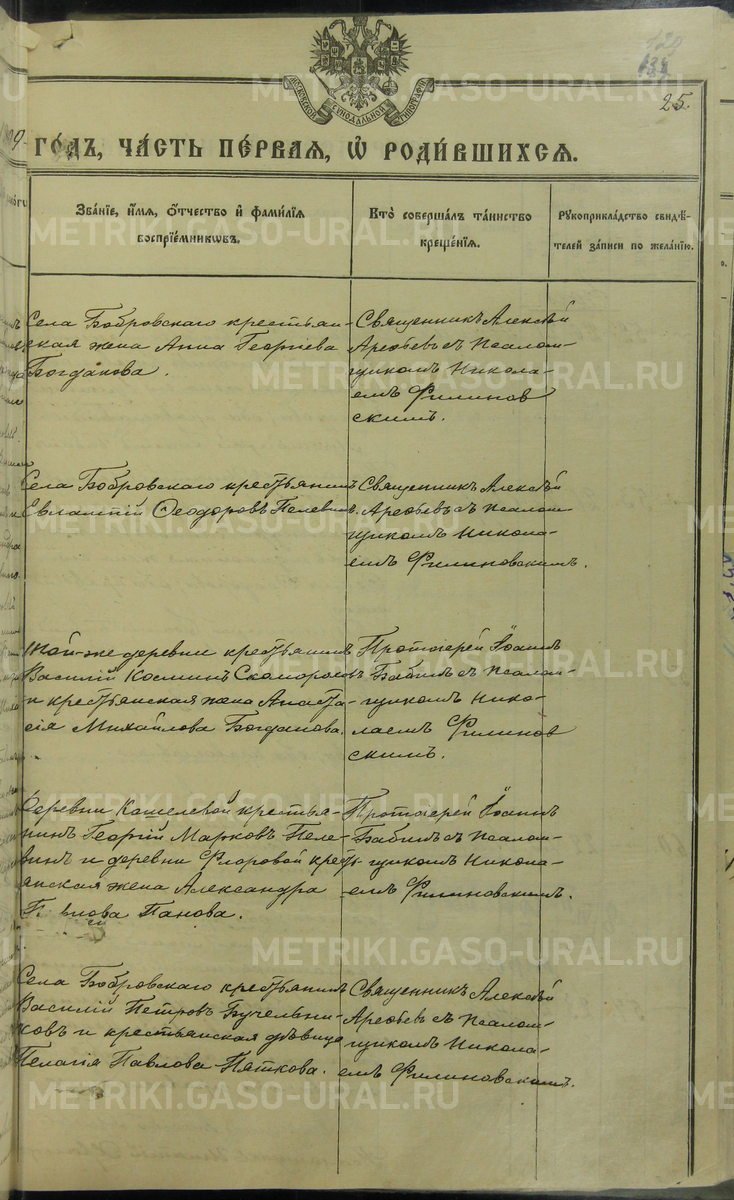 25.
МОСКОВСКОЙ СѴНОДАЛЬНОЙ ТИПОГРАФІИ
ГО́ДЪ, ЧА́СТЬ ПЕ́РВАЯ, Ѡ҆ РОДИ́ВШИХСЯ.
Зва́нїе, и҆́мя, ѻ҆́тчество и҆ фами́лїя
воспрїе́мниковъ.
Кто̀ соверша́лъ та́инство
креще́нїя.
Рꙋкоприкла́дство свидѣ́-
телей за́писи по жела́нїю.
Села Бобровскаго крестьян-
ская жена Анна Георгіева
Богданова.
Священникъ Алексѣй
Арефьевъ съ псалом-
щикомъ Никола-
емъ Филинов
скимъ.
Села Бобровскаго крестьянинъ
Евлампій Ѳеодоровъ Пелевинъ.
Священникъ Алексѣй
Арефьевъ съ псалом
щикомъ Никола-
емъ Филиновскимъ.
той-же деревни крестьянинъ
Василій Косминъ Скоморохов
и крестьянская жена Анаста-
сія Михайлова Богданова.
Протоіерей Іоаннъ
Бабинъ съ псалом-
щикомъ Нико-
лаемъ Филинов
скимъ.
Деревни Кошелевой крестья-
нинъ Георгій Марковъ Пеле-
винъ и деревни Флоровой кресть-
янская жена Александра
Панова.
Протоіерей Іоаннъ
Бабинъ съ псалом-
щикомъ Никола-
емъ Филиновскимъ.
Села Бобровскаго крестьянинъ
Василій Петровъ Бучельни-
ковъ и крестьянская дѣвица
Пелагія Павлова Пяткова.
Священникъ Алексѣй
Арефьевъ съ псалом-
щикомъ Никола-
емъ Филиновскимъ.
METRIKI.GASO-URAL.RU